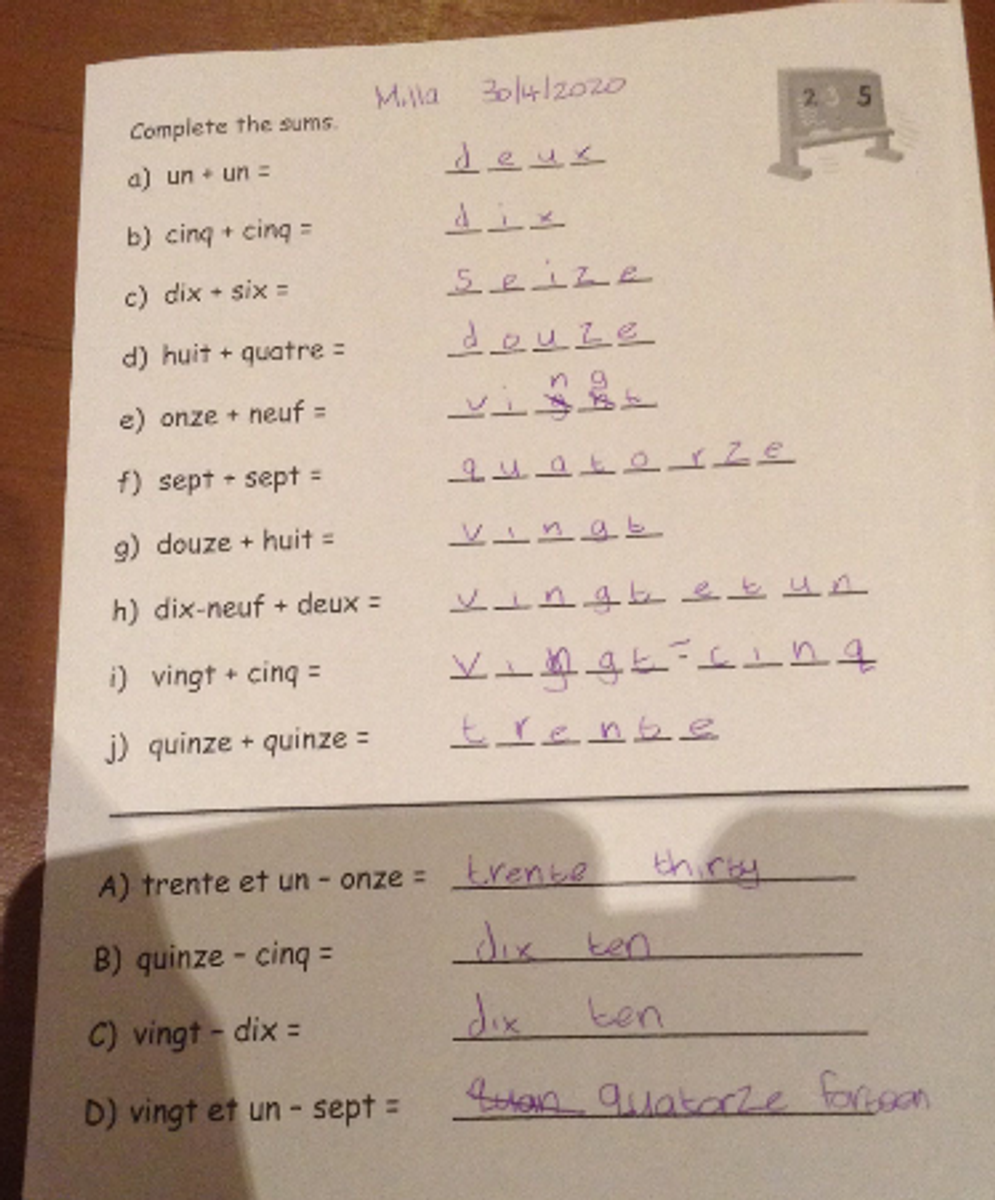 Milla 30/4/2020
2 3 5
Complete the sums.
a) un + un = deux
b) cinq + cinq = dix
c) dix + six = seize
d) huit + quatre = douze
e) onze + neuf = vingt
f) sept + sept = quatorze
g) douze + huit = vingt
h) dix-neuf + deux = vingt et un
i) vingt + cinq = vingt-cinq
j) quinze + quinze = trente
A) trente et un - onze = trente thirty
B) quinze - cinq = dix ten
C) vingt - dix = dix ten
D) vingt et un - sept = quatorze forteen